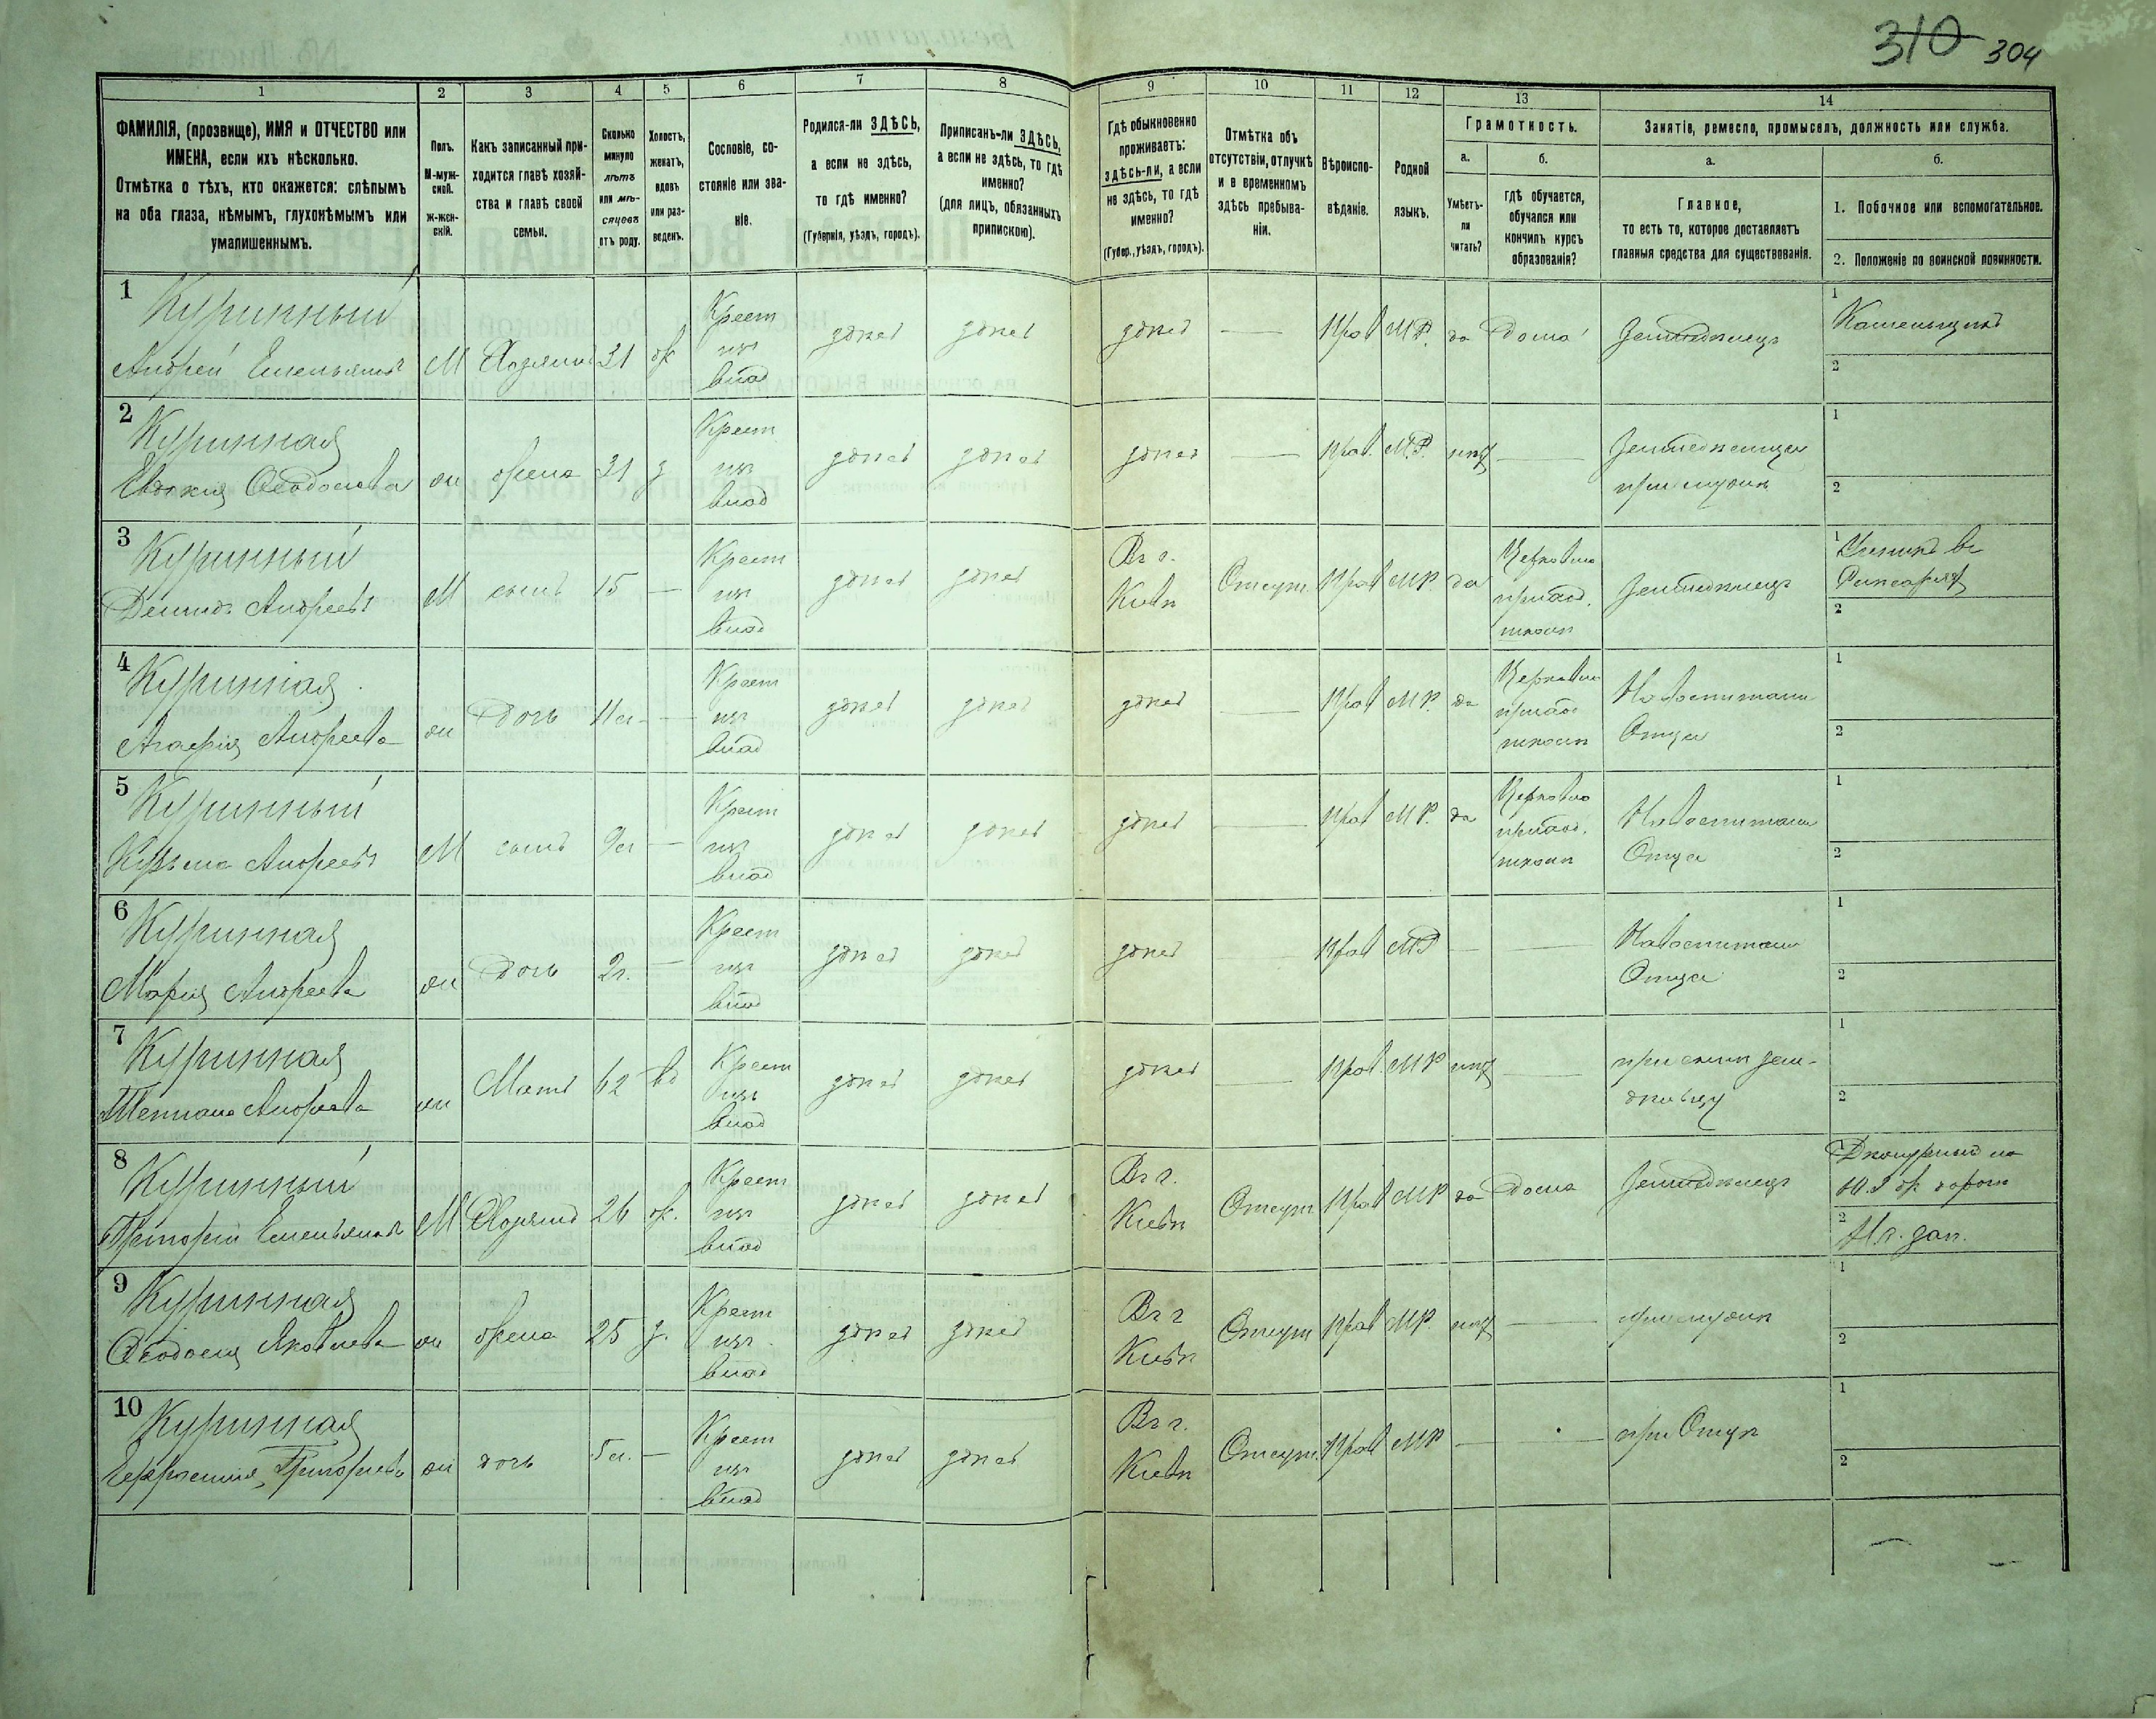 310 304
1 2 3 4 5 6 7 8 9 10 11 12 13 14
ФАМИЛІЯ, (прозвище), ИМЯ и ОТЧЕСТВО или
ИМЕНА, если ихъ нѣсколько.
Отмѣтка о тѣхъ, кто окажется: слѣпымъ
на оба глаза, нѣмымъ, глухонѣмымъ или
умалишеннымъ.
Полъ.
М-муж-
ской.
ж-жен-
скій.
Какъ записанный при-
ходится главѣ хозяй-
ства и главѣ своей
семьи.
Сколько
минуло
лѣтъ
или мѣ-
сяцевъ
отъ роду.
Холостъ,
женатъ,
вдовъ
или раз-
веденъ.
Сословіе, со-
стояніе или зва-
ніе.
Родился-ли ЗДѢСЬ,
а если не здѣсь,
то гдѣ именно?
(Губернія, уѣздъ, городъ).
Приписанъ-ли ЗДѢСЬ,
а если не здѣсь, то гдѣ
именно?
(для лицъ, обязанныхъ
припискою).
Гдѣ обыкновенно
проживаетъ:
здѣсь-ли, а если
не здѣсь, то гдѣ
именно?
(Губер., уѣздъ, городъ).
Отмѣтка объ
отсутствіи, отлучкѣ
и в временномъ
здѣсь пребыва-
ніи.
Вѣроиспо-
вѣданіе.
Родной
языкъ.
Грамотность.
а.
Умѣетъ-
ли
читать?
б.
гдѣ обучается,
обучался или
кончилъ курсъ
образованія?
Занятіе, ремесло, промыселъ, должность или служба.
а.
Главное,
то есть то, которое доставляетъ
главныя средства для существованія.
б.
1. Побочное или вспомогательное.
2. Положеніе по воинской повинности.
1 Куринный
Андрей Емельяновъ М Хозяинъ 31 ж Крест
изъ
влад здѣсь здѣсь здѣсь — Прав М.Р. да Дома Земледѣлецъ 1 2
2 Куринная
Евдокія Ѳеодосіева ж жена 31 з Крест
изъ
влад здѣсь здѣсь здѣсь — Прав. М.Р. нѣт — Земледѣлица
при мужѣ 1 2
3 Куринный
Демидъ Андреевъ М сынъ 15 — Крест
изъ
влад здѣсь здѣсь Въ г.
Кіевѣ Отсут. Прав М.Р. да Церковно
приход.
школѣ Земледѣлецъ 1 Ученикъ въ
2
4 Куринная
Агафія Андреева ж Дочь 11 л — Крест
изъ
влад здѣсь здѣсь здѣсь — Прав М.Р. да Церковно
приход
школѣ На воспитани
Отца 1 2
5 Куринный
Кузьма Андреевъ М сынъ 9 л — Крест
изъ
влад здѣсь здѣсь здѣсь — Прав М.Р. да Церковно
приход.
школѣ На воспитани
Отца 1 2
6 Куринная
Марія Андреева ж Дочь 2 г. — Крест
изъ
влад здѣсь здѣсь здѣсь — Прав М.Р — — На воспитани
Отца 1 2
7 Куринная
Андреева ж Мать 62 вд Крест
изъ
влад здѣсь здѣсь здѣсь — Прав. М.Р нѣт — при сынѣ зем-
1 2
8 Куринный
Григорій Емельяновъ М Хозяинъ 26 ж. Крест
изъ
влад здѣсь здѣсь Въ г.
Кіевѣ Отсут Прав М.Р да Дома Земледѣлецъ 1
Ю.З. ж дорогѣ
2 зап.
9 Куринная
Ѳеодосія Яковлева ж жена 25 з. Крест
изъ
влад здѣсь здѣсь Въ г
Кіевѣ Отсут Прав М.Р нѣт — при мужѣ 1 2
10 Куринная
Ефросинія Григорьева ж дочь 5 л. — Крест
изъ
влад здѣсь здѣсь Въ г.
Кіевѣ Отсут. Прав М.Р — — при Отцѣ 1 2